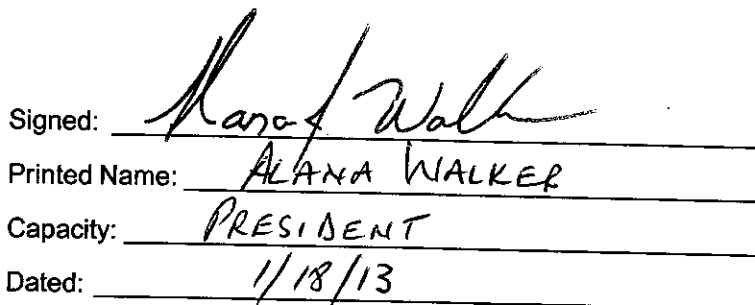 Signed: Alana J Walker
Printed Name: ALANA WALKER
Capacity: PRESIDENT
Dated: 1/18/13